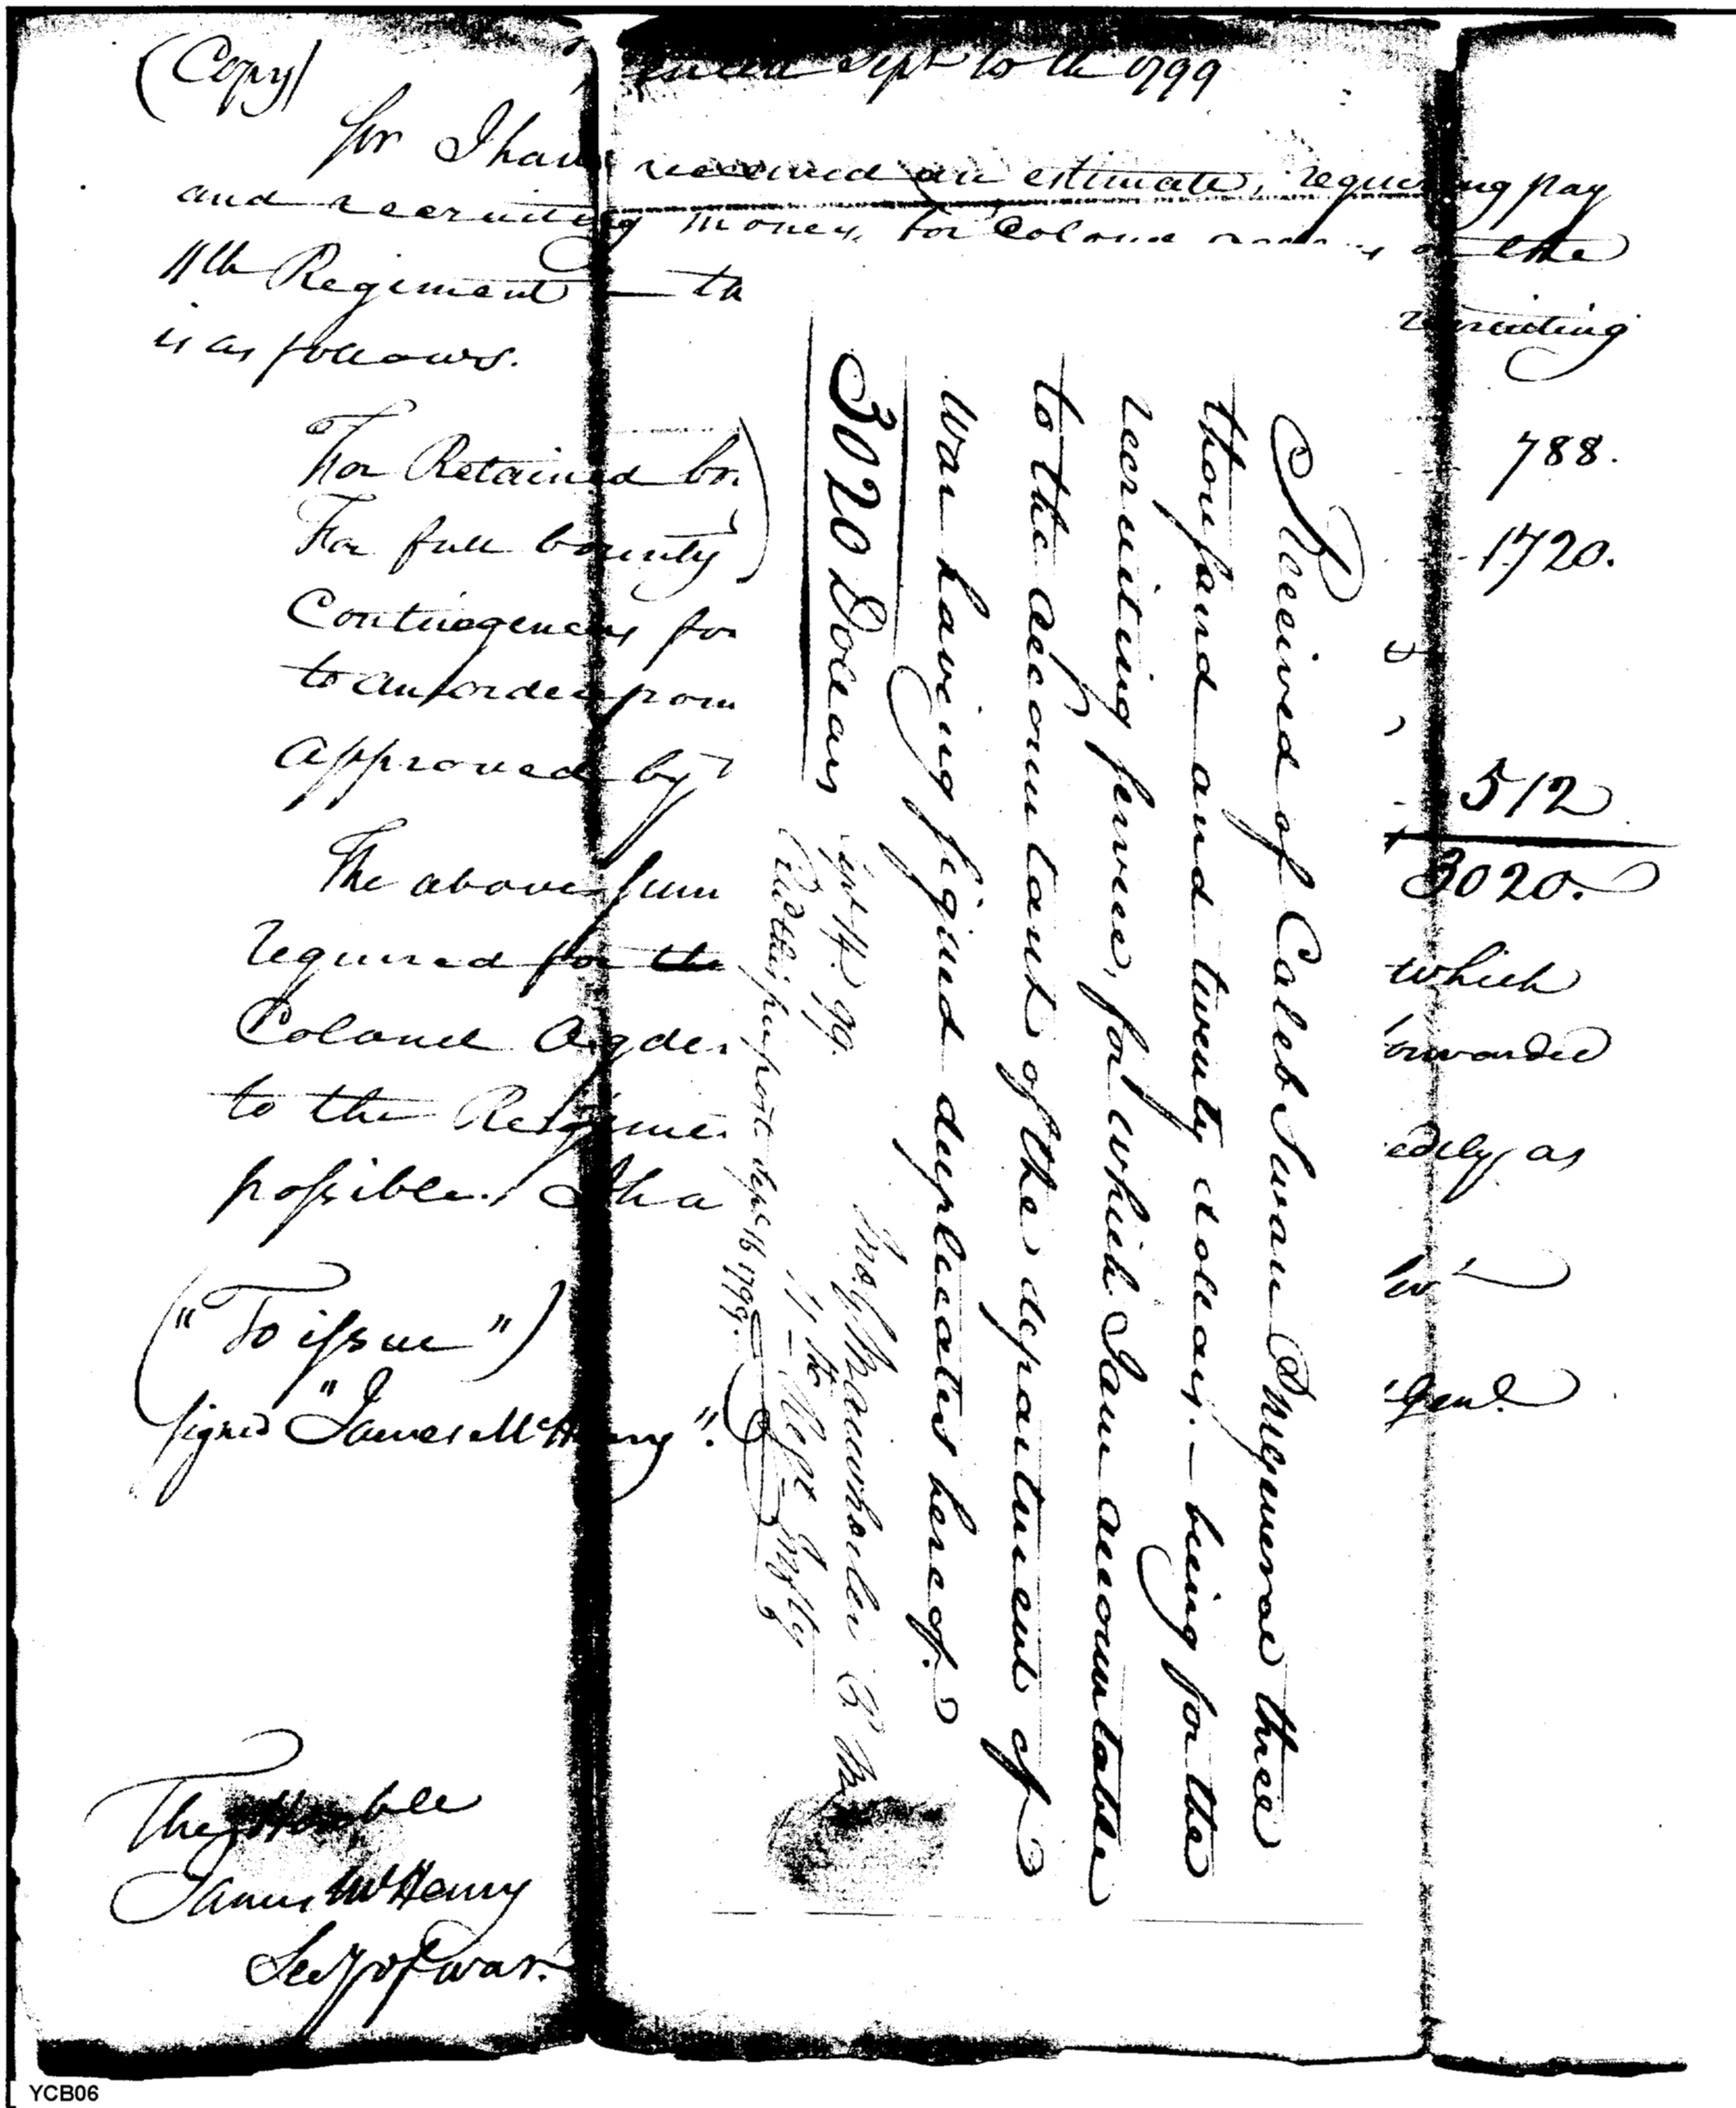 (Copy)
Sept 10th 1799
Sir I have received an estimate, requiring pay
and recruiting money, for Colonel of the
11th Regiment — th
recruiting
is as follows.
For Retained bo 788.
For full bounty 1720.
Contingencies for
to an order from
approved by 512
3020.
The above sum which
required for the
Colonel Ogden forwarded
to the Regime edily as
possible. I ha
("To issue")
signed "James McHenry".
Genl.
The Honble
James McHenry
Secy of war.
Received of Caleb Swan P M General three
thousand and twenty dollars. — being for the
recruiting service, for which I am accountable
to the accountant of the department of
War having signed duplicates hereof.
3020 Dollars
Sept 14. 99.
Recd this pr post Sept 16 1799.
11th Regt Infty
YCB06